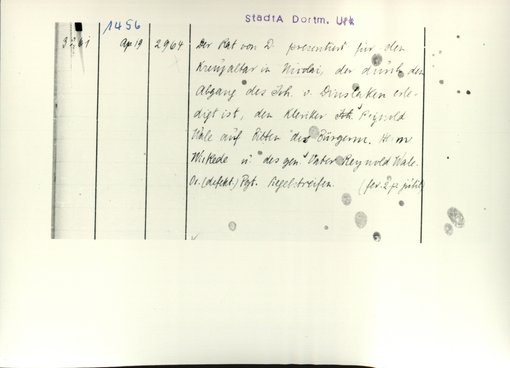 StadtA Dortm. Urk
1456
3261 Apr 19 2964 Der Rat von D. präsentiert für den
Kreuzaltar in Nicolai, der durch den
Abgang des Joh. v. Dinslaken erle-
digt ist, den Kleriker Joh. Reynold
Wale auf Bitten des Bürgerm. H. m
Wickede u. des gen. Vater Reynold Wale.
Or. (defekt) Pgt. Siegelstreifen. (fer. 2 p.